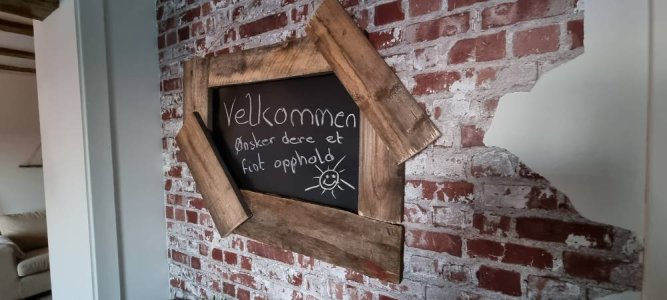 Velkommen
Ønsker dere et
fint opphold